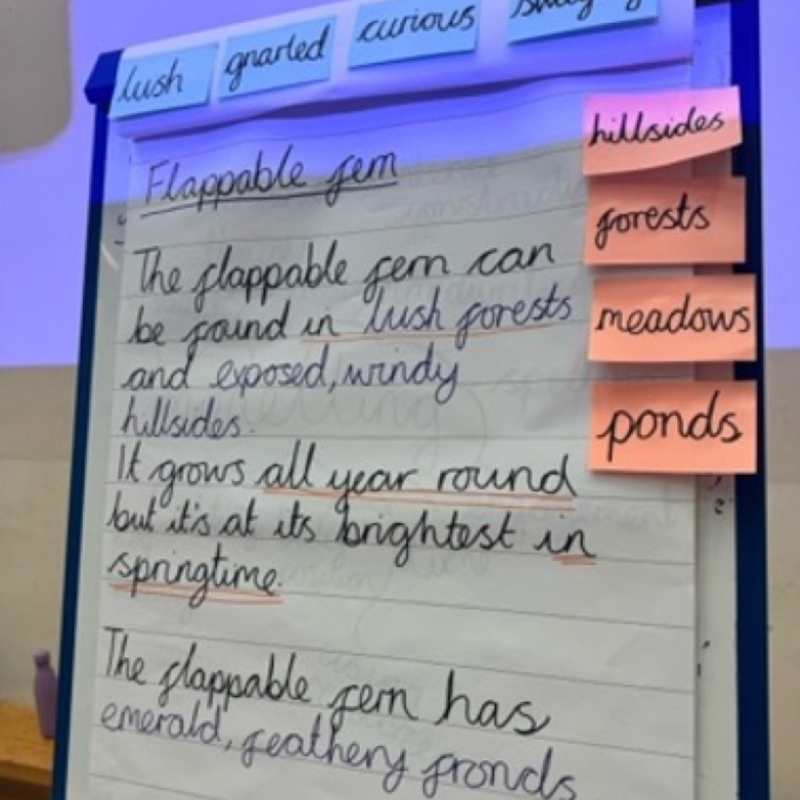 lush gnarled curious
hillsides
forests
meadows
ponds
Flappable fern
The flappable fern can
be found in lush forests
and exposed, windy
hillsides.
It grows all year round
but it's at its brightest in
springtime.
The flappable fern has
emerald, feathery fronds